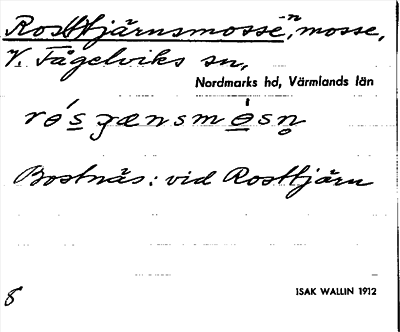 Rosttjärnsmosse -n, mosse,
V. Fågelviks sn,
Nordmarks hd, Värmlands län
Bostnäs: vid Rosttjärn
8
ISAK WALLIN 1912